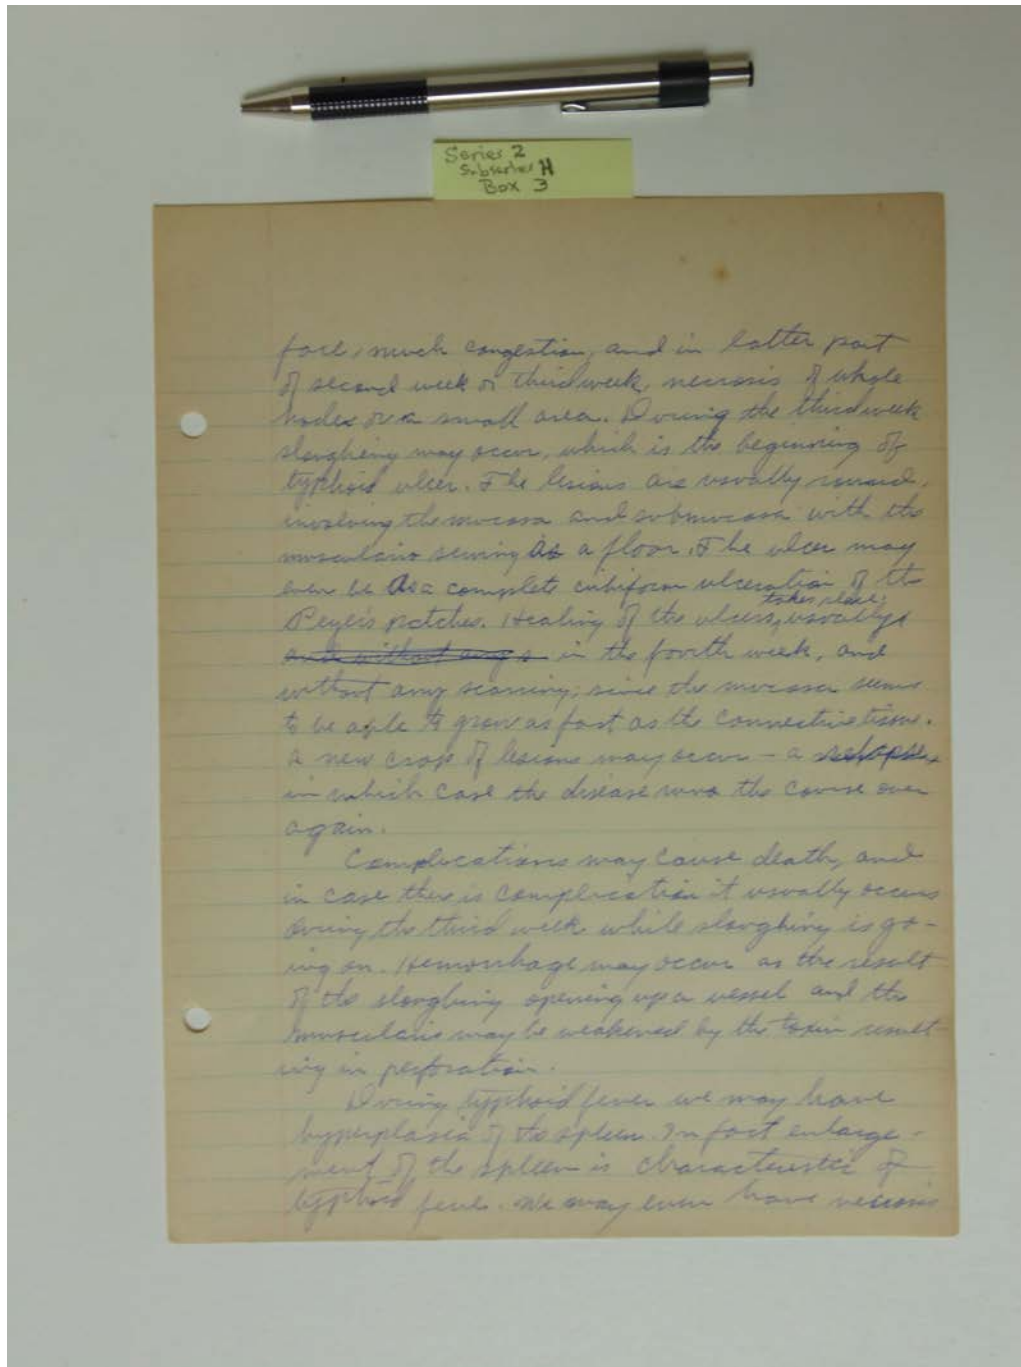 Series 2
Subseries H
Box 3
face, much congestion, and in latter part
of second week or third week, necrosis of whole
nodes or a small area. During the third week
sloughing may occur, which is the beginning of
typhoid ulcer. The lesions are usually round,
involving the mucosa and submucosa with the
muscularis serving as a floor. The ulcer may
even be as a complete cribiform ulceration of the
Peyer's patches. Healing of the ulcers, takes place, usually
and without any s in the fourth week, and
without any scarring; since the mucosa seems
to be able to grow as fast as the connective tissue.
A new crop of lesions may occur — a relapse,
in which case the disease runs the course over
again.
Complications may cause death, and
in case there is complication it usually occurs
during the third week while sloughing is go-
ing on. Hemorrhage may occur as the result
of the sloughing opening up a vessel and the
muscularis may be weakened by the toxin result-
ing in perforation.
During typhoid fever we may have
hyperplasia of the spleen. In fact enlarge-
ment of the spleen is characteristic of
typhoid fever. We may even have necrosis